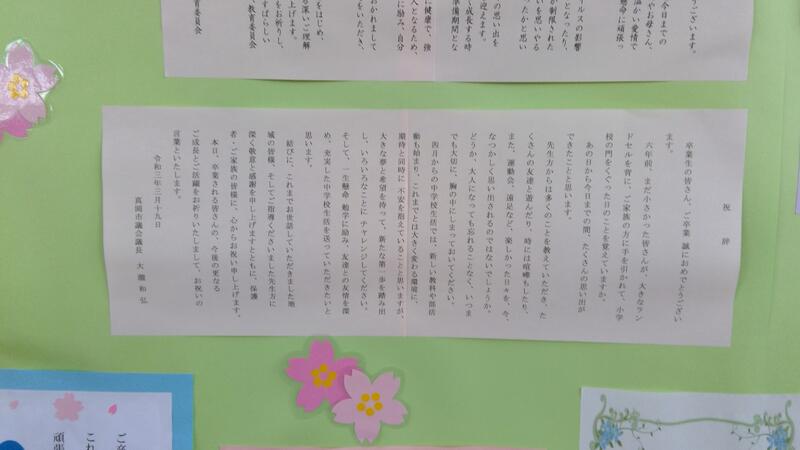 うございます。
今日までの
やお母さん、
温かい愛情で
懸命に頑張っ
ルスの影響
となったり、
が制限された
いを思いやる
ったかと思い
の思い出を
迎えます。
し成長する時
準備期間とな
に健康で、強
人となるため、
に励み、自分
おかれまして
をいただき、
をはじめ、
深いご理解
上げます。
をお祈りし、
すばらしい
教育委員会
育委員会
祝辞
卒業生の皆さん、ご卒業 誠におめでとうござい
ます。
六年前、まだ小さかった皆さんが、大きなラン
ドセルを背に、ご家族の方に手を引かれて、小学
校の門をくぐった日のことを覚えていますか。
あの日から今日までの間、たくさんの思い出が
できたことと思います。
先生方からは多くのことを教えていただき、た
くさんの友達と遊んだり、時には喧嘩もしたり、
また、運動会、遠足など、楽しかった日々を、今、
なつかしく思い出されるのではないでしょうか。
どうか、大人になっても忘れることなく、いつま
でも大切に、胸の中にしまっておいてください。
四月からの中学校生活では、新しい教科や部活
動も始まり、これまでとは大きく変わる環境に、
期待と同時に 不安を抱えていることと思いますが、
大きな夢と希望を持って、新たな第一歩を踏み出
し、いろいろなことに チャレンジしてください。
そして、一生懸命 勉学に励み、友達との友情を深
め、充実した中学校生活を送っていただきたいと
思います。
結びに、これまでお世話していただきました地
域の皆様、そしてご指導くださいました先生方に
深く敬意と感謝を申し上げますとともに、保護
者・ご家族の皆様に、心からお祝い申し上げます。
本日、卒業される皆さんの、今後の更なる
ご成長とご活躍をお祈りいたしまして、お祝いの
言葉といたします。
令和三年三月十九日
真岡市議会議長 大瀧和弘
ご卒
これ
頑張